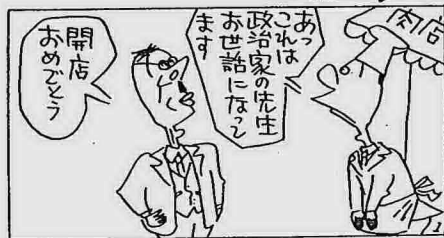 肉店
あっ
これは
政治家の先生
お世話になって
ます
開店
おめでとう